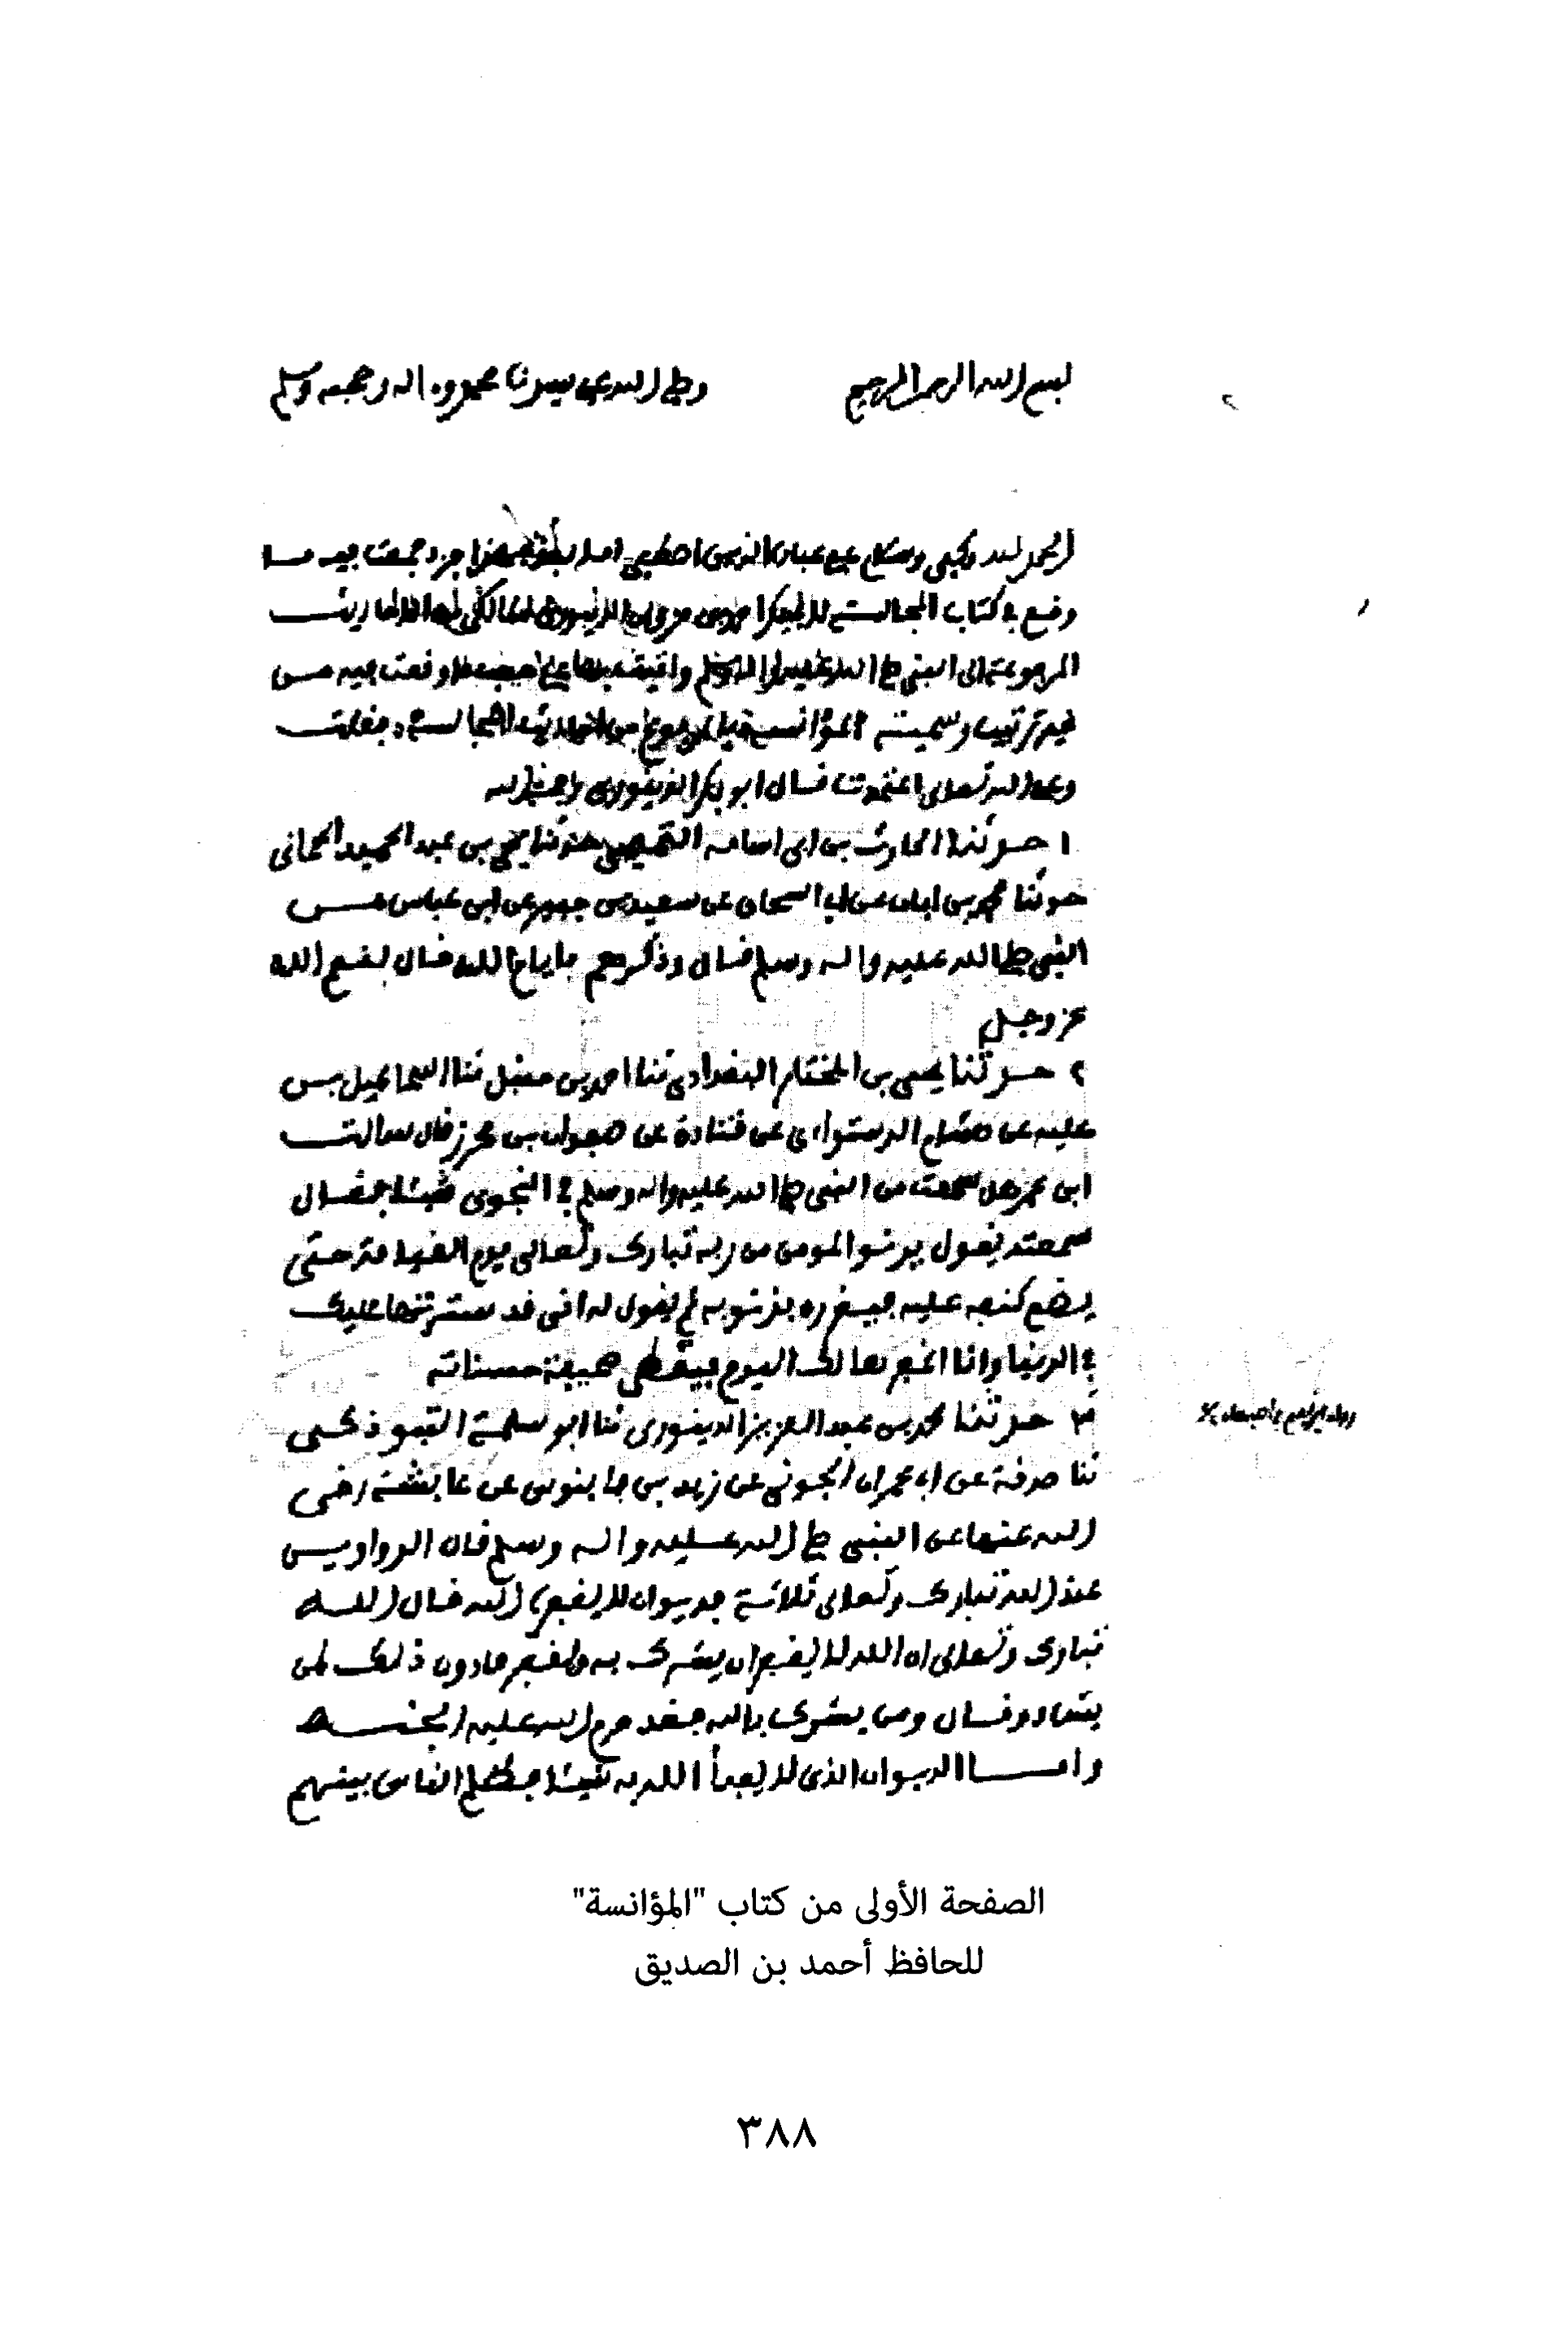 بسم الله الرحمن الرحيم وصلى الله على سيدنا محمد وءاله وصحبه وسلم
الحمد لله وكفى وسلام على عباده الذين اصطفى اما بعد فهذا جزء جمعت فيه ما
وقع في كتاب المجالسة لابي بكر احمد بن مروان الدينوري المالكي من الاحاديث
المرفوعة الى النبي صلى الله عليه واله وسلم واثبتها على حسب ما وقعت فيه من
غير ترتيب وسميته المؤانسة بالمرفوع من احاديث المجالسة فقلت
وعلى الله تعالى اعتمدت قال ابو بكر الدينوري رحمه الله
١ حدثنا الحارث بن ابي اسامه التميمي حدثنا يحيى بن عبد الحميد الحماني
حدثنا محمد بن ابان عن ابي اسحاق عن سعيد بن جبير عن ابن عباس عن
النبي صلى الله عليه واله وسلم قال وذكرهم بايام الله قال بنعم الله
عز وجل
٢ حدثنا يحيى بن المختار البغدادي ثنا احمد بن حنبل ثنا اسماعيل بن
علية عن هشام الدستوائي عن قتادة عن صفوان بن محرز قال سالت
ابن عمر هل سمعت من النبي صلى الله عليه واله وسلم في النجوى شيئا فقال
سمعته يقول يدنو المومن من ربه تبارك وتعالى يوم القيامة حتى
يضع كنفه عليه فيقرره بذنوبه ثم يقول له اني قد سترتها عليك
في الدنيا وانا اغفرها لك اليوم فيعطى صحيفة حسناته
٣ حدثنا محمد بن عبد العزيز الدينوري ثنا ابو سلمة التبوذكي
ثنا صدقة عن ابي عمران الجوني عن زيد بن بابنوس عن عايشة رضي
الله عنها عن النبي صلى الله عليه واله وسلم قال الدواوين
عند الله تبارك وتعالى ثلاثة فديوان لا يغفره الله قال الله
تبارك وتعالى ان الله لا يغفر ان يشرك به ويغفر مادون ذلك لمن
يشاء وقال ومن يشرك بالله فقد حرم الله عليه الجنة
واما الديوان الذي لا يعبأ الله به شيئا فظلم الناس بينهم
الصفحة الأولى من كتاب "المؤانسة"
للحافظ أحمد بن الصديق
٣٨٨